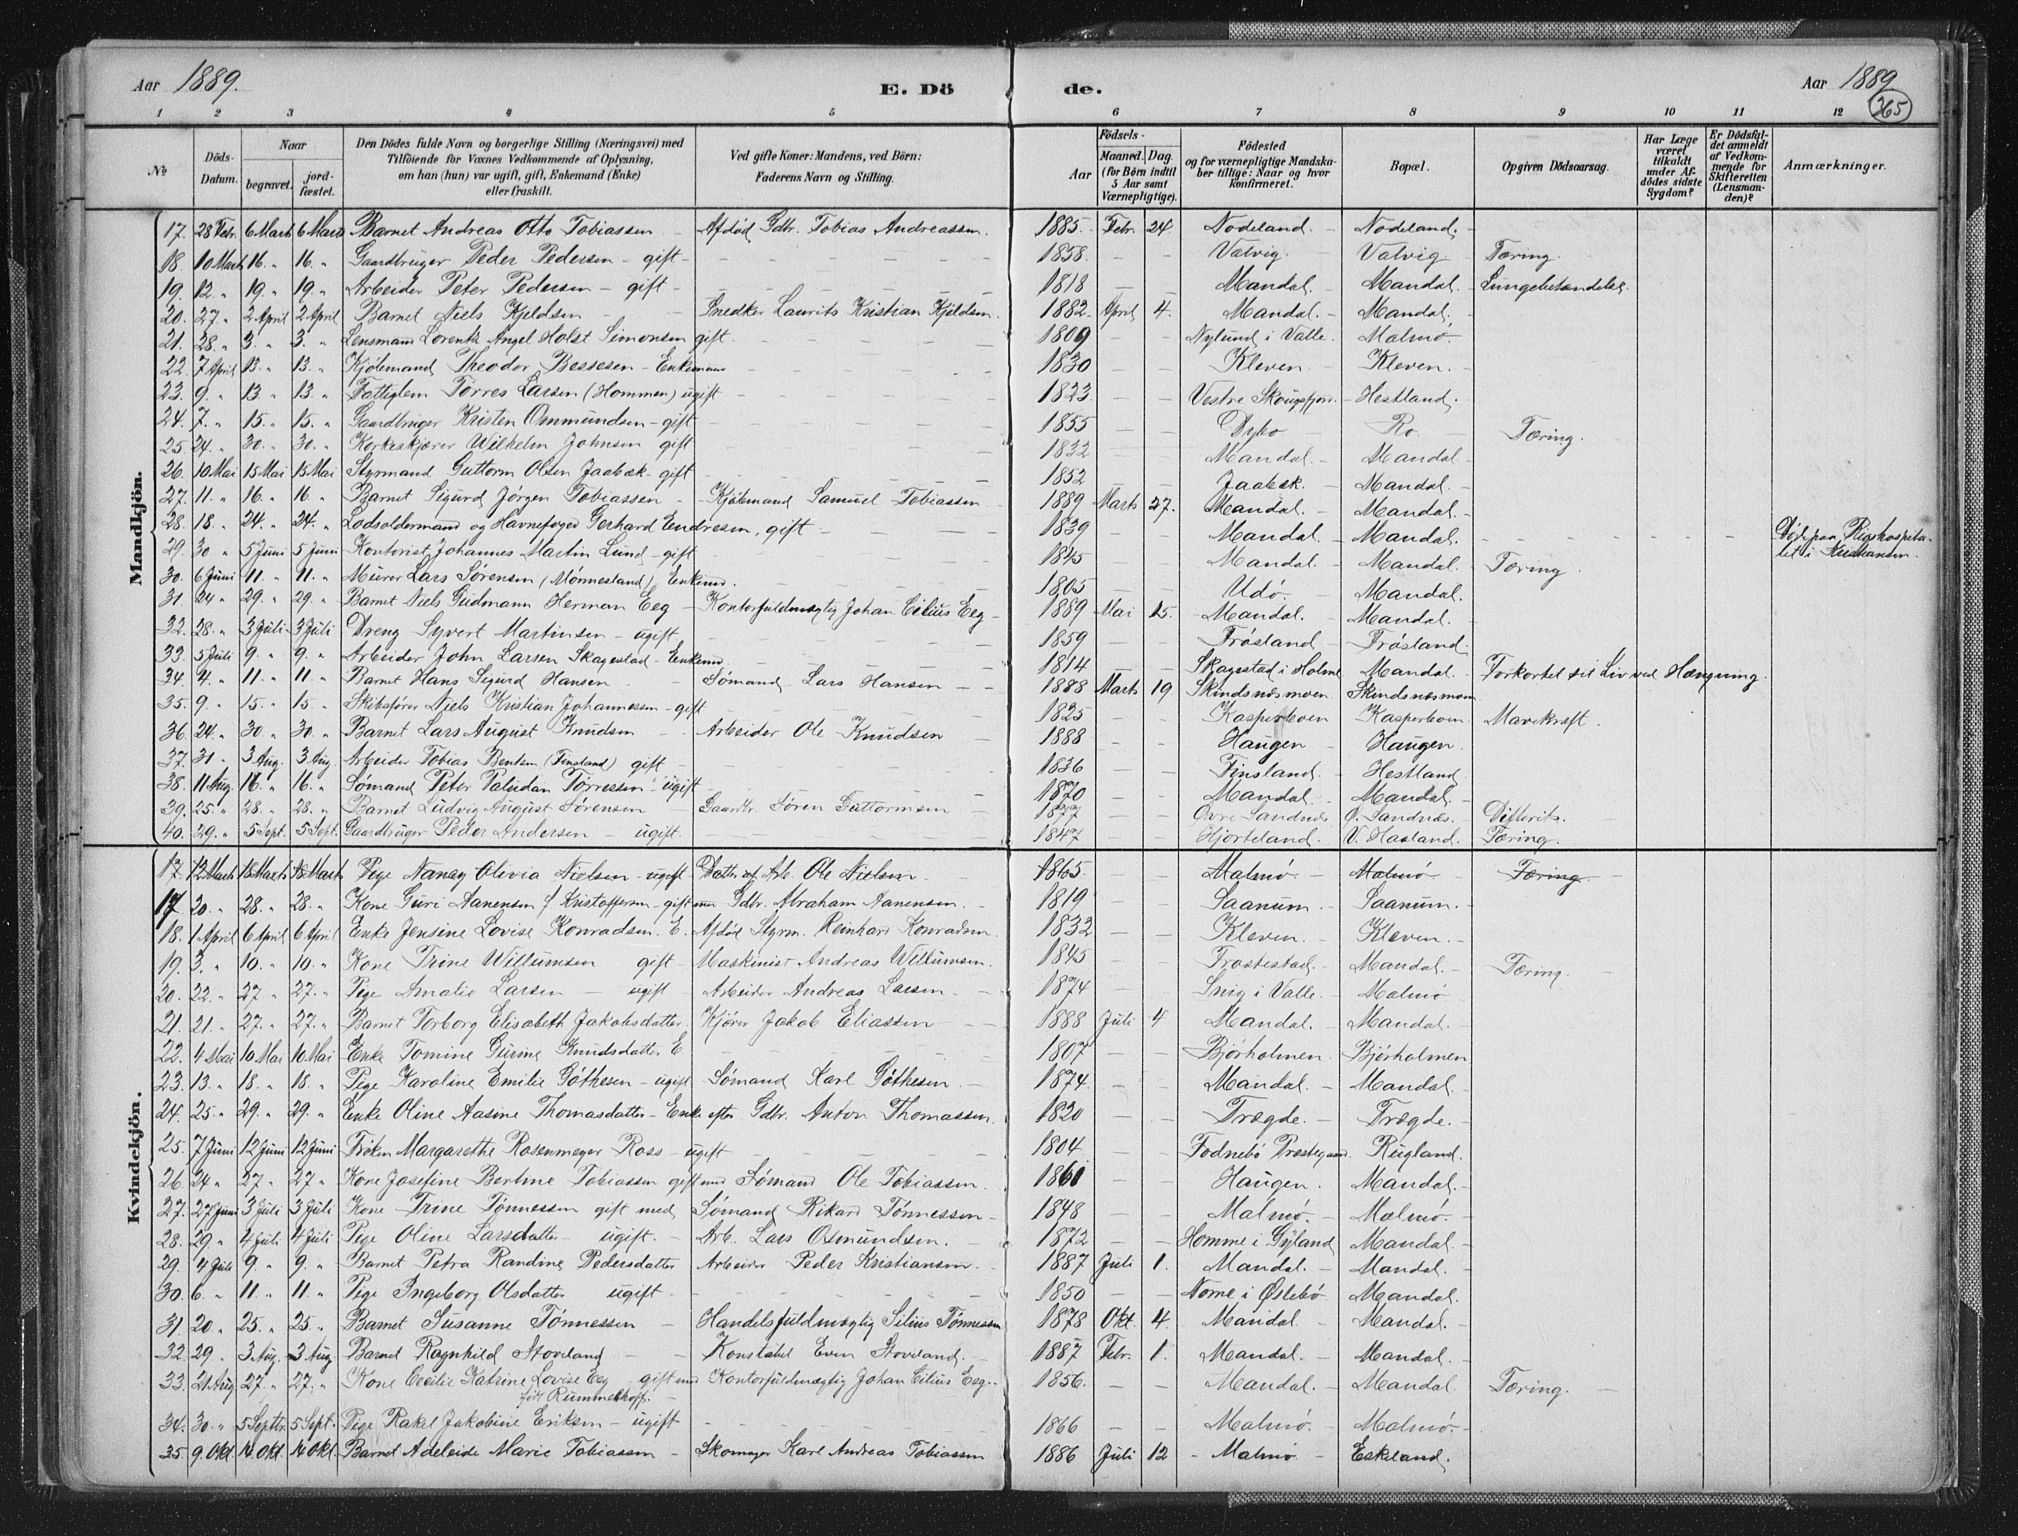 Aar 1889. E. Dö de. Aar 1889
365
1 2 3 4 5 6 7 8 9 10 11 12
№ Döds-Datum. Naar begravet. jordfæstet. Den Dödes fulde Navn og borgerlige Stilling (Næringsvei) med Tilföiende for Voxnes Vedkommende af Oplysning, om han (hun) var ugift, gift, Enkemand (Enke) eller fraskilt. Ved gifte Koner: Mandens, ved Börn: Faderens Navn og Stilling. Födsels- Aar Maaned. Dag. (for Börn indtil 5 Aar samt Værnepligtige). Födested og for værnepligtige Mandskaber tillige: Naar og hvor konfirmeret. Bopæl. Opgiven Dödsaarsag. Har Læge været tilkaldt under Afdödes sidste Sygdom? Er Dödsfaldet anmeldt af Vedkommende for Skifteretten (Lensmanden)? Anmærkninger.
Mandkjön.
17. 28 Febr. 6 Marts 6 Marts Barnet Andreas Otto Tobiassen – Afdöd Gdbr. Tobias Andreassen. 1885. Febr. 24 Nodeland. – Nodeland.
18. 10 Marts 16. „ 16. „ Gaardbruger Peder Pedersen – gift – 1858. – – Valvig. Valvig – Tæring.
19. 12. „ 19. „ 19. „ Arbeider Peter Pedersen – gift – 1818 – – Mandal. – Mandal. – Lungebetændelse.
20. 27. „ 2 April 2 April Barnet Niels Kjeldsen – Snedker Laurits Kristian Kjeldsen. 1882. April 4. Mandal. – Mandal.
21. 28. „ 3. „ 3. „ Lensmand Lorentz Angel Holst Simonsen gift. 1809 – – Nylund i Valle. Malmö.
22. 7 April 13. „ 13. „ Kjöbmand Theodor Bessesen – Enkemand – 1830 – – Kleven – Kleven.
23. 9. „ 13 „ 13. „ Fattiglem Torres Larsen (Hommen) ugift – 1823. – – Vestre Skougsfjor. – Hestland.
24. 7. „ 15. „ 15. „ Gaardbruger Kristen Ommundsen – gift – 1855 – – Dybo – Ro. – Tæring.
25 24. „ 30. „ 30. „ Korkeskjærer Wilhelm Johnsen gift 1832 – – Mandal. – Mandal.
26. 10 Mai 15 Mai 15 Mai Styrmand Guttorm Olsen Jaabæk – gift 1852 – – Jaabæk. – Mandal.
27. 11. „ 16. „ 16 „ Barnet Sigurd Jörgen Tobiassen – Kjöbmand Samuel Tobiassen 1889 Marts 27. Mandal. – Mandal.
28. 18. „ 24. „ 24. „ Lodsoldermand og Havnefoged Gerhard Endresen, gift – 1839 – – Mandal. – Mandal.
29. 30 „ 5 Juni 5 Juni Kontorist Johannes Martin Lund – gift – 1845 – – Mandal. – Mandal. Tæring. Död paa Rigshospitalet i Kristiania.
30. 6 Juni 11. „ 11. „ Murer Lars Sörensen (Mönnesland) Enkemd. 1805 – – Udö. – Mandal.
31. 24 „ 29. „ 29. „ Barnet Niels Gudmann Herman Eeg – Kontorfuldmægtig Johan Cilius Eeg – 1889 Mai 15. Mandal. – Mandal.
32. 28. „ 3 Juli 3 Juli Dreng Syvert Martinsen – ugift 1859 – – Fröstand – Fröstand.
33. 5 Juli 9. „ 9. „ Arbeider John Larsen Skagestad – Enkemd. 1814 – – Skagestad i Holme Mandal. – Forkortet sit Liv ved Hængning.
34 4. „ 11. „ 11. „ Barnet Hans Sigurd Hansen Sömand Lars Hansen – 1888 Marts 19 Skindsnæsmoen. Skindsnæsmoen
35. 9. „ 15. „ 15. „ Skibsförer Niels Kristian Johannessen – gift – 1825 – – Kasperboen Kasperboen Mavekræft.
36. 24. „ 30 „ 30. „ Barnet Lars August Knudsen – Arbeider Ole Knudsen – 1888 – – Haugen – Haugen.
37. 31 „ 3 Aug. 3 Aug Arbeider Tobias Bentsen (Finsland) gift – 1836 – – Finsland. – Hestland.
38. 11 Aug. 16. „ 16. „ Sömand Peter Paludan Torressen – ugift 1870 – – Mandal. – Mandal.
39. 25. „ 28. „ 28. „ Barnet Ludvig August Sörensen Gaardbr. Sören Guttormsen 1877 – – Övre Sandnæs Ö. Sandnæs. – Difterit.
40. 29. „ 5 Sept. 5 Sept. Gaardbruger Peder Andersen – ugift. 1847 – – Hjorteland. V. Haaland. Tæring.
Kvindekjön.
17. 12 Marts 18 Marts 18 Marts Pige Nanny Olivia Nielsen – ugift Datter af Arb. Ole Nielsen. 1865. – – Malmö. – Malmö – Tæring
17 20. „ 28. „ 28. „ Kone Guri Aanensen f. Kristoffersen – gift med Gdbr. Abraham Aanensen. – 1819 – – Saanum. – Saanum.
18. 1 April 6 April 6 April Enke Jensine Lovise Konradsen. E. Afdöd Styrm. Reinhard Konradsen. 1832 – – Kleven. – Kleven. –
19 3. „ 10. „ 10. „ Kone Trine Willumsen gift – Maskinist Andreas Willumsen. 1845 – – Frostestad. – Mandal. – Tæring.
20. 22. „ 27 „ 27. „ Pige Amalie Larsen – ugift – Arbeider Andreas Larsen – 1874 – – Snig i Valle. – Malmö
21. 21. „ 27. „ 27. „ Barnet Torborg Elisabeth Jakobsdatter. Kjörer Jakob Eliassen – 1888 Juli 4 Mandal. – Mandal.
22. 4 Mai 10 Mai 10 Mai Enke Tomine Gurine Knudsdatter E. 1807 – – Bjørholmen. Bjørholmen
23. 13. „ 18. „ 18. „ Pige Karoline Emilie Göthesen – ugift Sömand Karl Göthesen. – 1874. – – Mandal. – Mandal.
24. 25 „ 29. „ 29. „ Enke Oline Aasine Thomasdatter – Enke efter Gdbr. Anton Thomassen 1820 – – Trægde. – Trægde. –
25. 7 Juni 12 Juni 12 Juni Fröken Margarethe Rosenmeyer Ross – ugift 1804 – – Fodnebö Præstegaard Rugland.
26. 24 „ 27 „ 27 „ Kone Josefine Bertine Tobiassen gift med Sömand Ole Tobiassen. 1861 – – Haugen. – Mandal. –
27. 27 Juni 3 Juli 3 Juli Kone Trine Tönnessen gift med Sömand Rikard Tönnessen – 1848 – – Malmö. – Malmö.
28. 29. „ 4 Juli 4 Juli Pige Oline Larsdatter – ugift. – Arb. Lars Osmundsen. 1872 – – Homme i Gyland Mandal. –
29. 4 Juli 9. „ 9. „ Barnet Petra Randine Pedersdatter Arbeider Peder Kristiansen. 1887 Juli 1. Mandal. – Mandal.
30. 6 „ 11. „ 11. „ Pige Ingeborg Olsdatter ugift. – 1850 – – Nome i Öslebö Mandal.
31. 20 „ 25. „ 25 „ Barnet Susanne Tönnessen – Handelsfuldmægtig Silius Tönnessen 1878 Okt. 4. Mandal – Mandal.
32. 29. „ 3 Aug. 3 Aug Barnet Ragnhild Stoveland – Konstabel Even Stoveland. – 1887 Febr. 1. Mandal. – Mandal.
33. 21 Aug 27. „ 27. „ Kone Cecilie Katrine Lovise Eeg – gift med Kontorfuldmægtig Johan Cilius Eeg – 1856. – – Mandal. – Mandal. Tæring. –
föd Rummelhoff.
34. 30. „ 5 Septbr. 5 Sept. Pige Rakel Jakobine Eriksen – ugift 1866 – – Malmö – Malmö. –
35. 9 Okt. 14 Okt. 14 Okt. Barnet Adeleide Marie Tobiassen – Skomager Karl Andreas Tobiassen 1886 Juli 12 – Malmö – Eskeland.